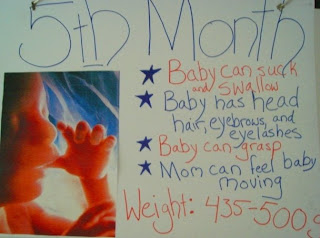 5th Month
★ Baby can suck
and swallow
★ Baby has head
hair, eyebrows, and
eyelashes
★ Baby can grasp
★ Mom can feel baby
moving
Weight: 435-500g